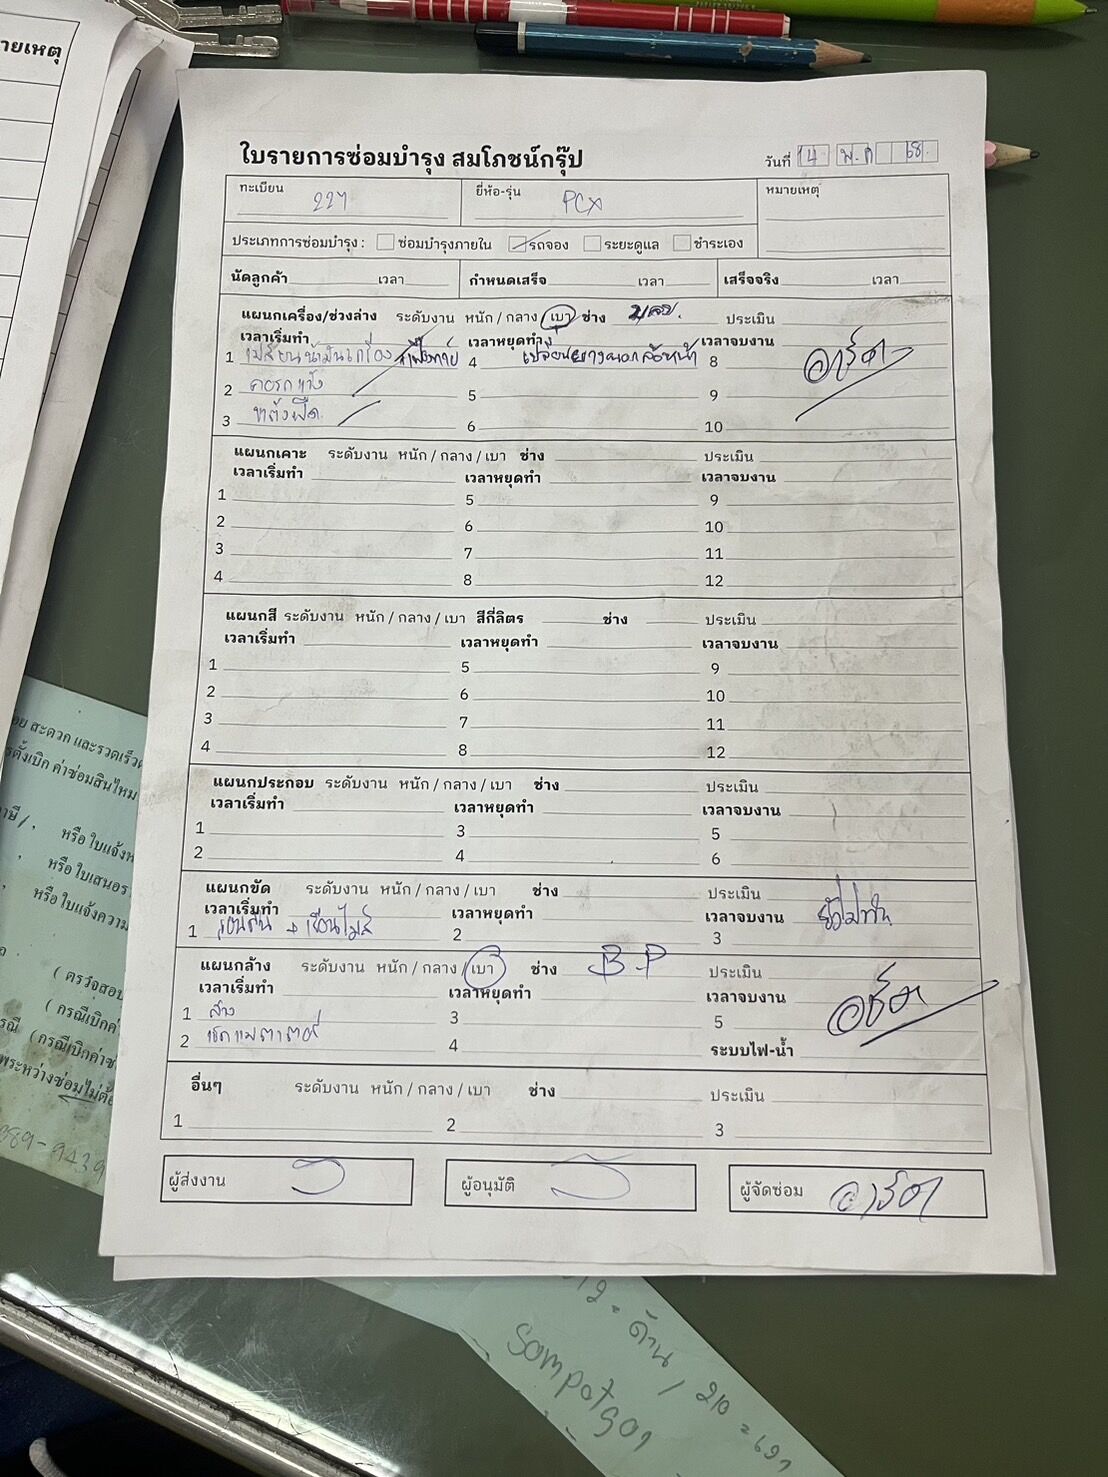 ายเหตุ
ใบรายการซ่อมบำรุง สมโภชน์กรุ๊ป
วันที่ 14 พ.ค 68
ทะเบียน 227 ยี่ห้อ-รุ่น PCX หมายเหตุ
ประเภทการซ่อมบำรุง : ซ่อมบำรุงภายใน รถจอง ระยะดูแล ชำระเอง
นัดลูกค้า เวลา กำหนดเสร็จ เวลา เสร็จจริง เวลา
แผนกเครื่อง/ช่วงล่าง ระดับงาน หนัก / กลาง / เบา ช่าง ประเมิน
เวลาเริ่มทำ เวลาหยุดทำ เวลาจบงาน
1 เปลี่ยนน้ำมันเครื่อง เฟืองท้าย 4 เปลี่ยนยางนอกล้อหน้า 8
2 คอรถแข็ง 5 9
3 6 10
แผนกเคาะ ระดับงาน หนัก / กลาง / เบา ช่าง ประเมิน
เวลาเริ่มทำ เวลาหยุดทำ เวลาจบงาน
1 5 9
2 6 10
3 7 11
4 8 12
แผนกสี ระดับงาน หนัก / กลาง / เบา สีกี่ลิตร ช่าง ประเมิน
เวลาเริ่มทำ เวลาหยุดทำ เวลาจบงาน
1 5 9
2 6 10
3 7 11
4 8 12
แผนกประกอบ ระดับงาน หนัก / กลาง / เบา ช่าง ประเมิน
เวลาเริ่มทำ เวลาหยุดทำ เวลาจบงาน
1 3 5
2 4 6
แผนกขัด ระดับงาน หนัก / กลาง / เบา ช่าง ประเมิน
เวลาเริ่มทำ เวลาหยุดทำ เวลาจบงาน
1 เรือนไมล์ 2 3
แผนกล้าง ระดับงาน หนัก / กลาง / เบา ช่าง B.P ประเมิน
เวลาเริ่มทำ เวลาหยุดทำ เวลาจบงาน
1 ล้าง 3 5
2 4 ระบบไฟ-น้ำ
อื่นๆ ระดับงาน หนัก / กลาง / เบา ช่าง ประเมิน
1 2 3
ผู้ส่งงาน ผู้อนุมัติ ผู้จัดซ่อม
สะดวก และรวดเร็ว
ค่าซ่อมสินไหม
หรือ ใบแจ้งห
หรือ ใบเสนอร
หรือ ใบแจ้งความ
( ตรวจสอบ
( กรณีเบิกค่
(กรณีเบิกค่าซ่
ระหว่างซ่อมไม่ต้อ
089-9439
ด้าน / 210 =
Sompotgo